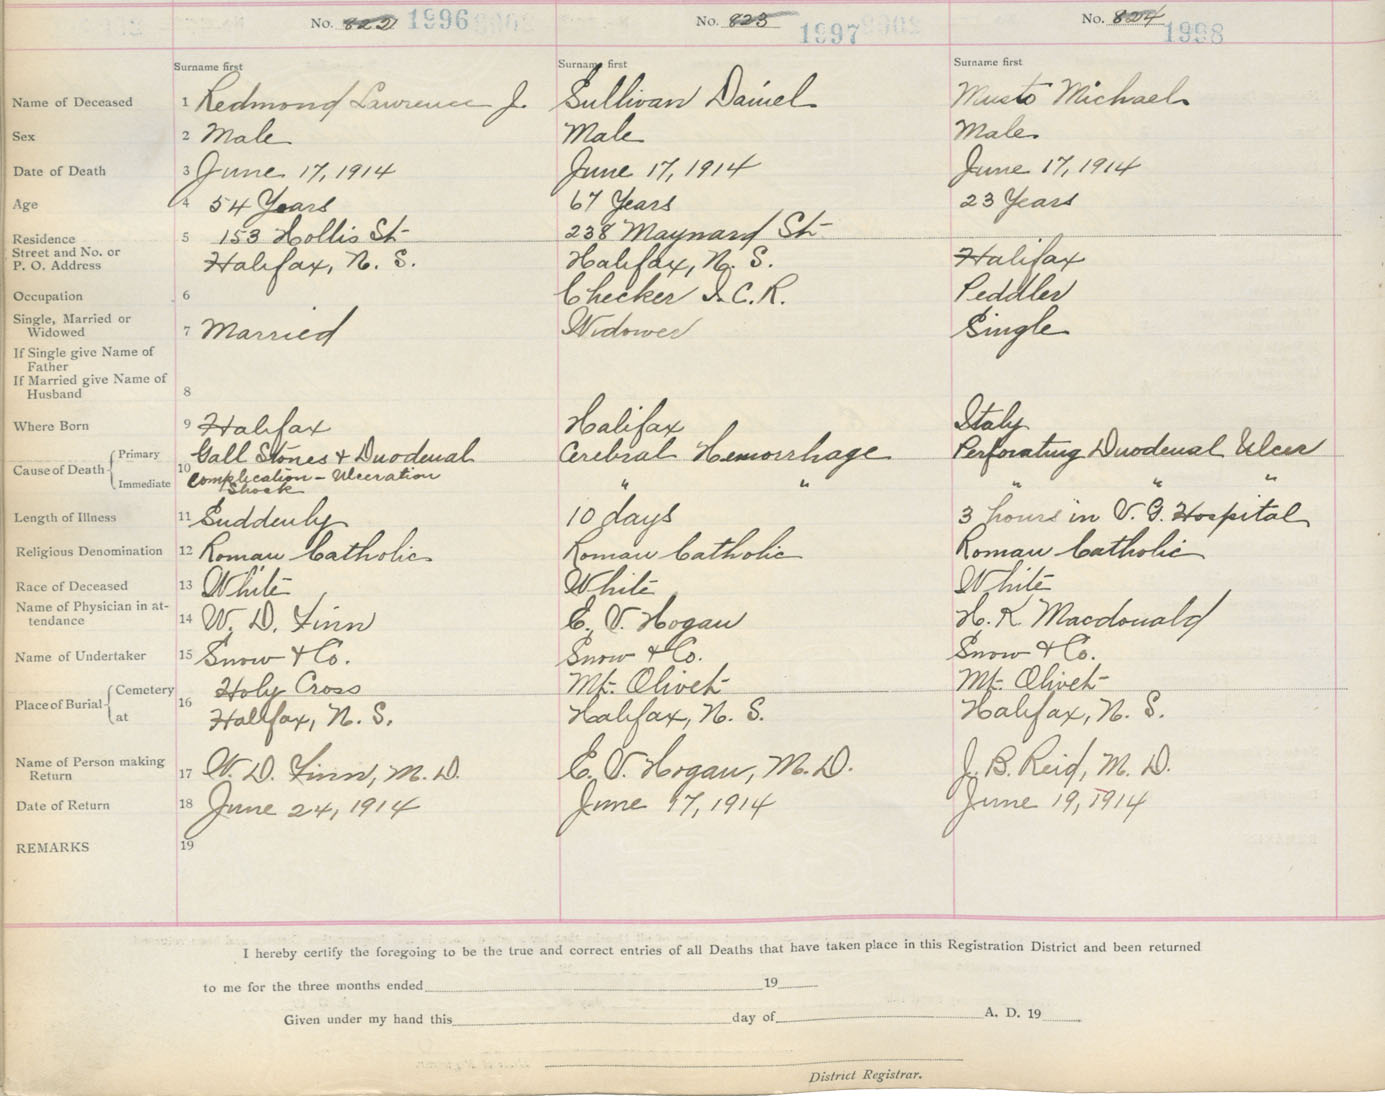 No. 822 1996 No. 823 1997 No. 824 1998
Surname first Surname first Surname first
Name of Deceased 1 Redmond Lawrence J. Sullivan Daniel Musto Michael
Sex 2 Male Male Male
Date of Death 3 June 17, 1914 June 17, 1914 June 17, 1914
Age 4 54 Years 67 Years 23 Years
Residence 5 153 Hollis St 238 Maynard St
Street and No. or
P. O. Address Halifax, N. S. Halifax, N. S. Halifax
Occupation 6 Checker I. C. R. Peddler
Single, Married or
Widowed 7 Married Widower Single
If Single give Name of
Father
If Married give Name of
Husband 8
Where Born 9 Halifax Halifax Italy
Cause of Death Primary 10 Gall Stones & Duodenal Cerebral Hemorrhage Perforating Duodenal Ulcer
Immediate Complication - Ulceration " " " " "
Shock
Length of Illness 11 Suddenly 10 days 3 hours in V. G. Hospital
Religious Denomination 12 Roman Catholic Roman Catholic Roman Catholic
Race of Deceased 13 White White White
Name of Physician in at-
tendance 14 W. D. Finn E. V. Hogan H. K. Macdonald
Name of Undertaker 15 Snow & Co. Snow & Co. Snow & Co.
Place of Burial Cemetery 16 Holy Cross Mt. Olivet Mt. Olivet
at Halifax, N. S. Halifax, N. S. Halifax, N. S.
Name of Person making
Return 17 W. D. Finn, M. D. E. V. Hogan, M. D. J. B. Reid, M. D.
Date of Return 18 June 24, 1914 June 17, 1914 June 19, 1914
REMARKS 19
I hereby certify the foregoing to be the true and correct entries of all Deaths that have taken place in this Registration District and been returned
to me for the three months ended 19
Given under my hand this day of A. D. 19
District Registrar.